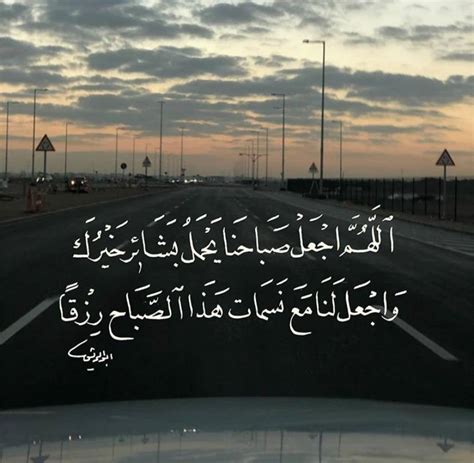 ٱللَّهُمَّ اجْعَلْ صَبَاحَنَا يَحْمِلُ بَشَائِرَ خَيْرِكَ
وَاجْعَلْ لَنَا مَعَ نَسَمَات هَذَا ٱلصَّبَاحِ رِزْقًا